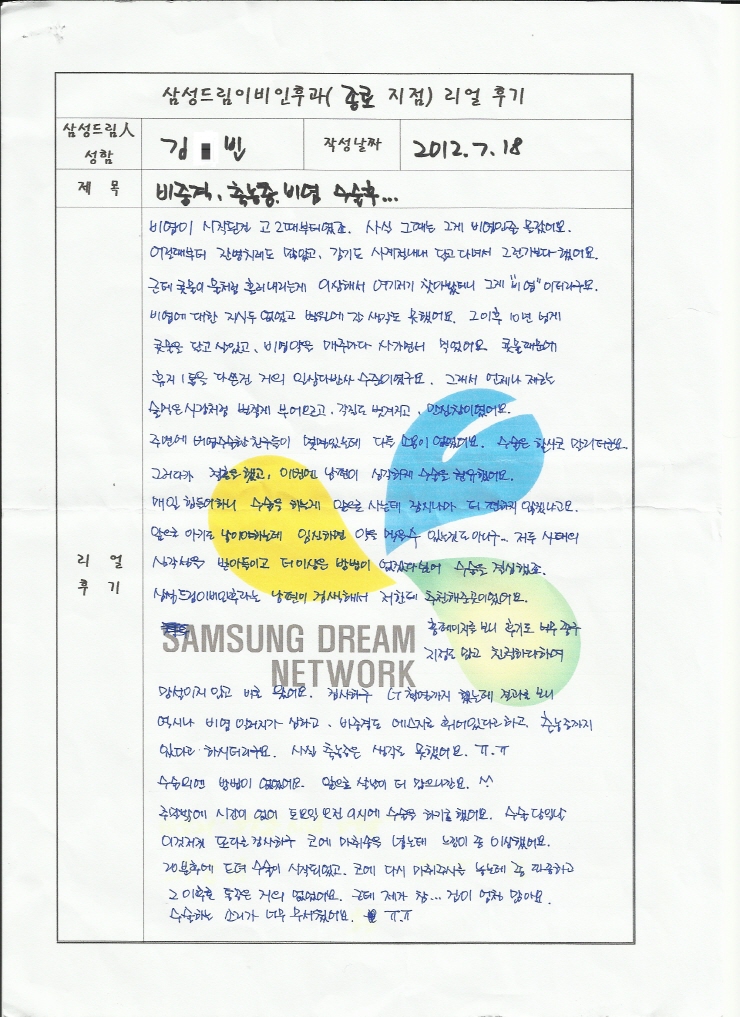 삼성드림이비인후과( 종로 지점) 리얼 후기
삼성드림人 성함
김 빈
작성날짜
2012.7.18
제 목
비중격, 축농증, 비염 수술후...
리 얼 후 기
비염이 시작된건 고2때부터였죠. 사실 그때는 그게 비염인줄 몰랐어요.
어렸때부터 잔병치레도 많았고, 감기도 사계절내내 달고 다녀서 그런가보다 했어요.
근데 콧물이 물처럼 흘러내리는게 이상해서 여기저기 찾아봤더니 그게 "비염"이더라구요.
비염에 대한 지식두 없었고 병원에 갈 생각도 못했어요. 그이후 10년 넘게
콧물을 달고 살았고, 비염약을 매주마다 사가면서 먹었어요. 콧물때문에
휴지 1통을 다쓴건 거의 일상다반사 수준이였구요. 그래서 언제나 제코는
술먹은사람처럼 벌겋게 부어오르고, 각질도 벗겨지고, 만신창이였어요.
주변에 비염수술한친구들이 몇몇있는데 다들 소용이 없었대요. 수술은 할사코 말리더군요.
그러다가 결혼을 했고, 이번엔 남편이 심각하게 수술을 권유했어요.
매일 힘들어하니 수술을 하는게 앞으로 사는데 잠시나마 더 편하지 않겠냐고요.
앞으로 아기도 낳아야하는데 임신하면 약을 먹을수 있는것도 아니구... 저두 사태의
심각성을 받아들이고 더이상은 방법이 없겠다싶어 수술을 결심했죠.
삼성드림이비인후과는 남편이 검색해서 저한테 추천해준곳이였어요.
홈페이지를 보니 후기도 너무 좋구
지점도 많고 친절하다하여
SAMSUNG DREAM
NETWORK
망설이지 않고 바로 갔어요. 검사하구 CT촬영까지 했는데 결과를 보니
역시나 비염 알러지가 심하고, 비중격도 에스자로 휘어있다라하고, 축농증까지
있다고 하시더라구요. 사실 축농증은 생각도 못했어요. ㅠ.ㅠ
수술외엔 방법이 없었어요. 앞으로 살날이 더 많으니깐요. ^^
주말밖에 시간이 없어 토요일 오전 9시에 수술을 하기로 했어요. 수술 당일날
이것저것 또다른 검사하구 코에 마취솜을 넣는데 느낌이 좀 이상했어요.
20분후에 드뎌 수술이 시작되었고. 코에 다시 마취주사를 놓는데 좀 따끔하고
그 이후론 통증은 거의 없었어요. 근데 제가 참... 겁이 엄청 많아요.
수술하는 소리가 너무 무서웠어요. ㅠ.ㅠ